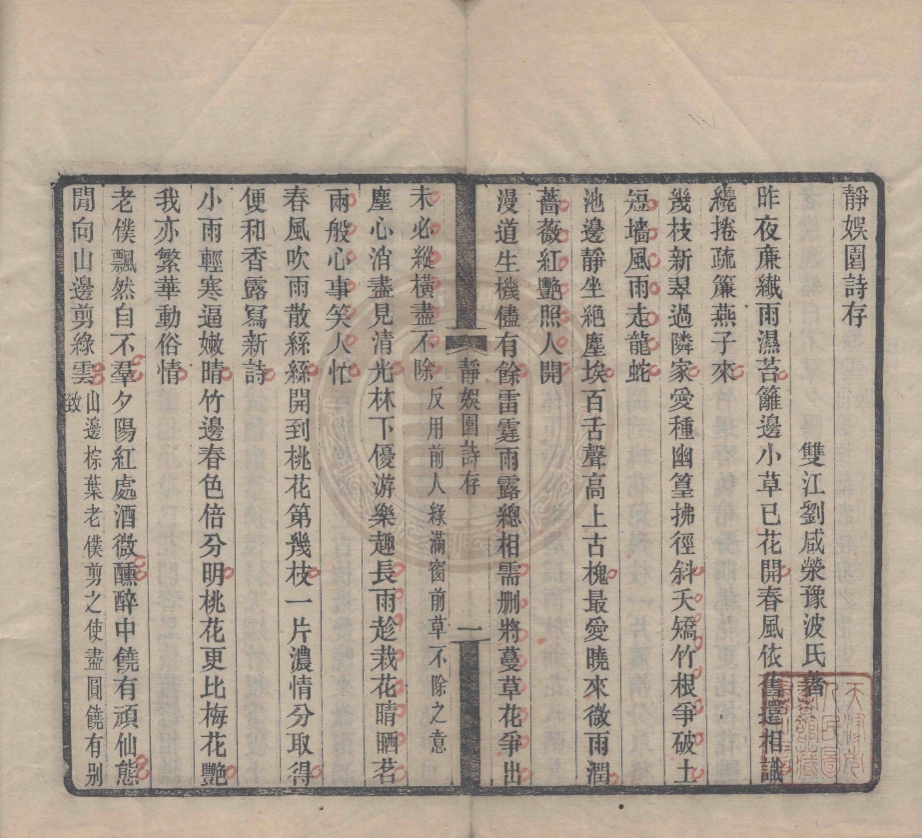 靜娛園詩存
雙江劉咸滎豫波氏著
昨夜廉纖雨濕苔籬邊小草已花開春風依舊還相識
纔捲疏簾燕子來
幾枝新翠過隣家愛種幽篁拂徑斜夭矯竹根爭破土
短墻風雨走龍蛇
池邊靜坐絕塵埃百舌聲高上古槐最愛曉來微雨潤
薔薇紅艷照人開
漫道生機儘有餘雷霆雨露總相需刪將蔓草花爭出
靜娛園詩存
一
未必縱橫盡不除反用前人綠滿窗前草不除之意
塵心消盡見清光林下優游樂趣長雨趁栽花晴晒茗
兩般心事笑人忙
春風吹雨散絲絲開到桃花第幾枝一片濃情分取得
便和香露寫新詩
小雨輕寒逼嫩晴竹邊春色倍分明桃花更比梅花艷
我亦繁華動俗情
老僕飄然自不羣夕陽紅處酒微醺醉中饒有頑仙態
閒向山邊剪綠雲山邊棕葉老僕剪之使盡圓饒有別致